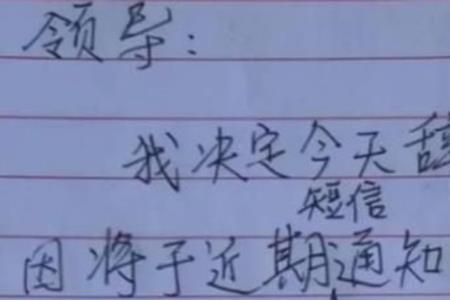 领导：
我决定今天辞
短信
因将于近期通知